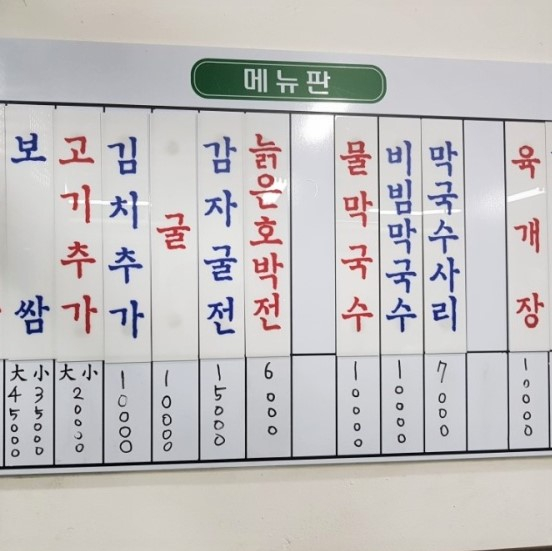 메뉴판
보쌈
大 45000
小 35000
고기추가
大 小
20000
김치추가
10000
굴
10000
감자굴전
15000
늙은호박전
6000
물막국수
10000
비빔막국수
10000
막국수사리
7000
육개장
10000